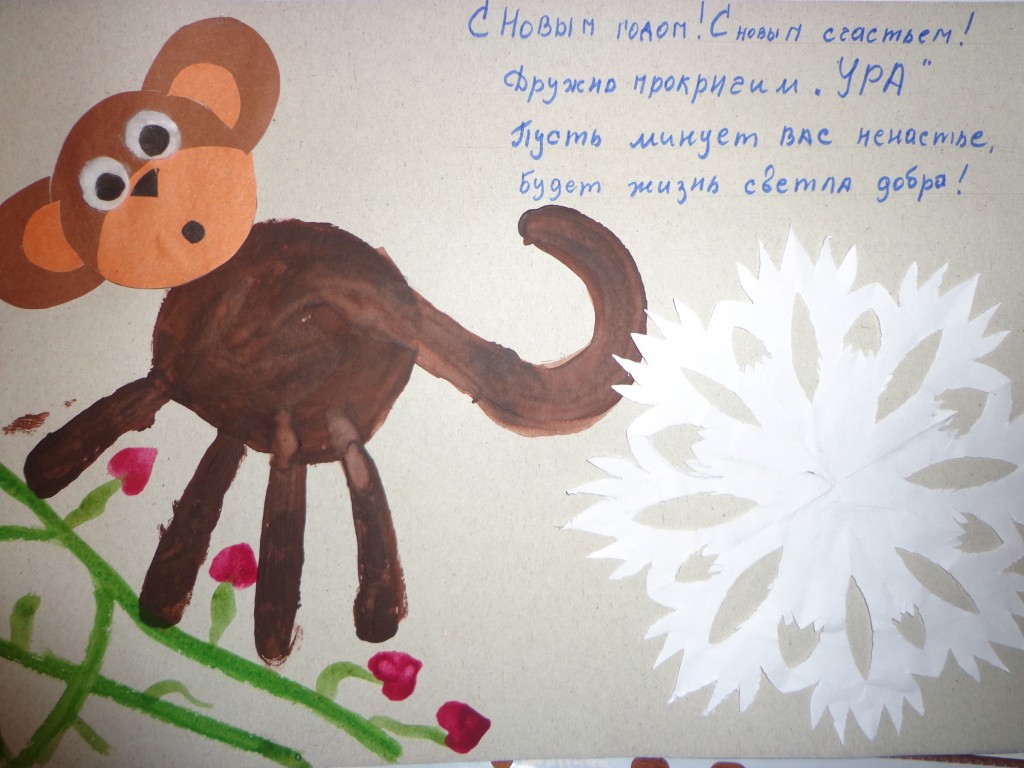 С Новым годом! С новым счастьем!
Дружно прокричим. "УРА"
Пусть минует ВАС ненастье,
будет жизнь светла добра!